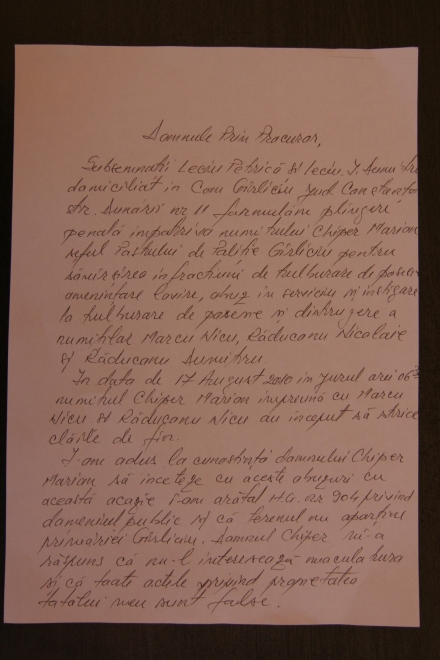 Domnule Prim Procuror,
Subsemnații Leciu Petrică și Leciu. I. Dumitru
domiciliat in Com Gîrliciu Jud Constanța
str. Dunării nr 11 formulăm plîngeri
penală împotriva numitului Chiper Marian
șeful Postului de Poliție Gîrliciu pentru
săvîrșirea infracțiuni de tulburare de posesie
amenințare lovire, abuz in serviciu și instigare
la tulburare de posesie și distrugere a
numiților Marcu Nicu, Răducanu Nicolaie
și Răducanu Dumitru.
In data de 17 August 2010 in jurul orei 06
numitul Chiper Marian impreună cu Marcu
Nicu și Răducanu Nicu au inceput să strice
clăile de fin.
I-am adus la cunoștință domnului Chiper
Marian să inceteze cu aceste abuzuri cu
această ocazie i-am arătat H.G. nr 904 privind
domeniul public și că terenul nu aparține
primăriei Gîrliciu. Domnul Chiper mi-a
răspuns că nu-l interesează
și că toate actele privind proprietatea
tatălui meu sunt false.